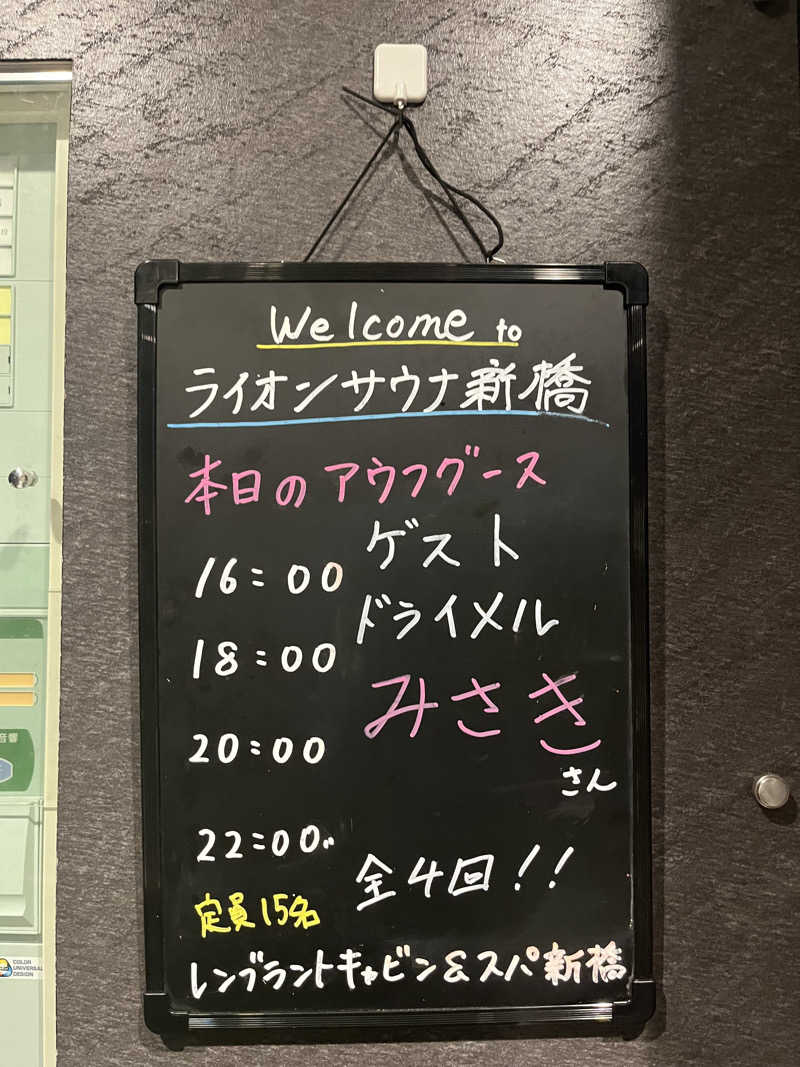 Welcome to
ライオンサウナ新橋
本日のアウフグース
ゲスト
16:00
ドライメル
18:00
みさき
20:00
さん
22:00
全4回!!
定員15名
レンブラントキャビン&スパ新橋
音響
COLOR
UNIVERSAL
DESIGN